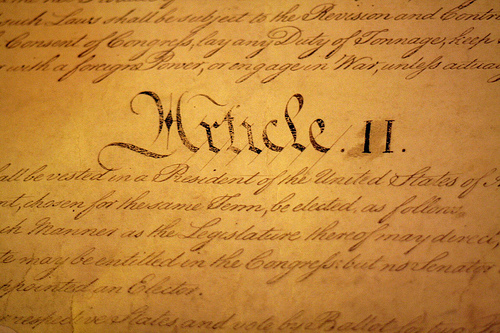 such Laws shall be subject to the Revision and Contr
Consent of Congress, lay any Duty of Tonnage, keep
with a foreign Power, or engage in War, unless actua
Article. II.
all be vested in a President of the United States of A
nt, chosen for the same Term, be elected, as follows
ch Manner as the Legislature thereof may direct
te may be entitled in the Congress: but no Senator
ppointed an Elector.
respective States, and vote by Ballot